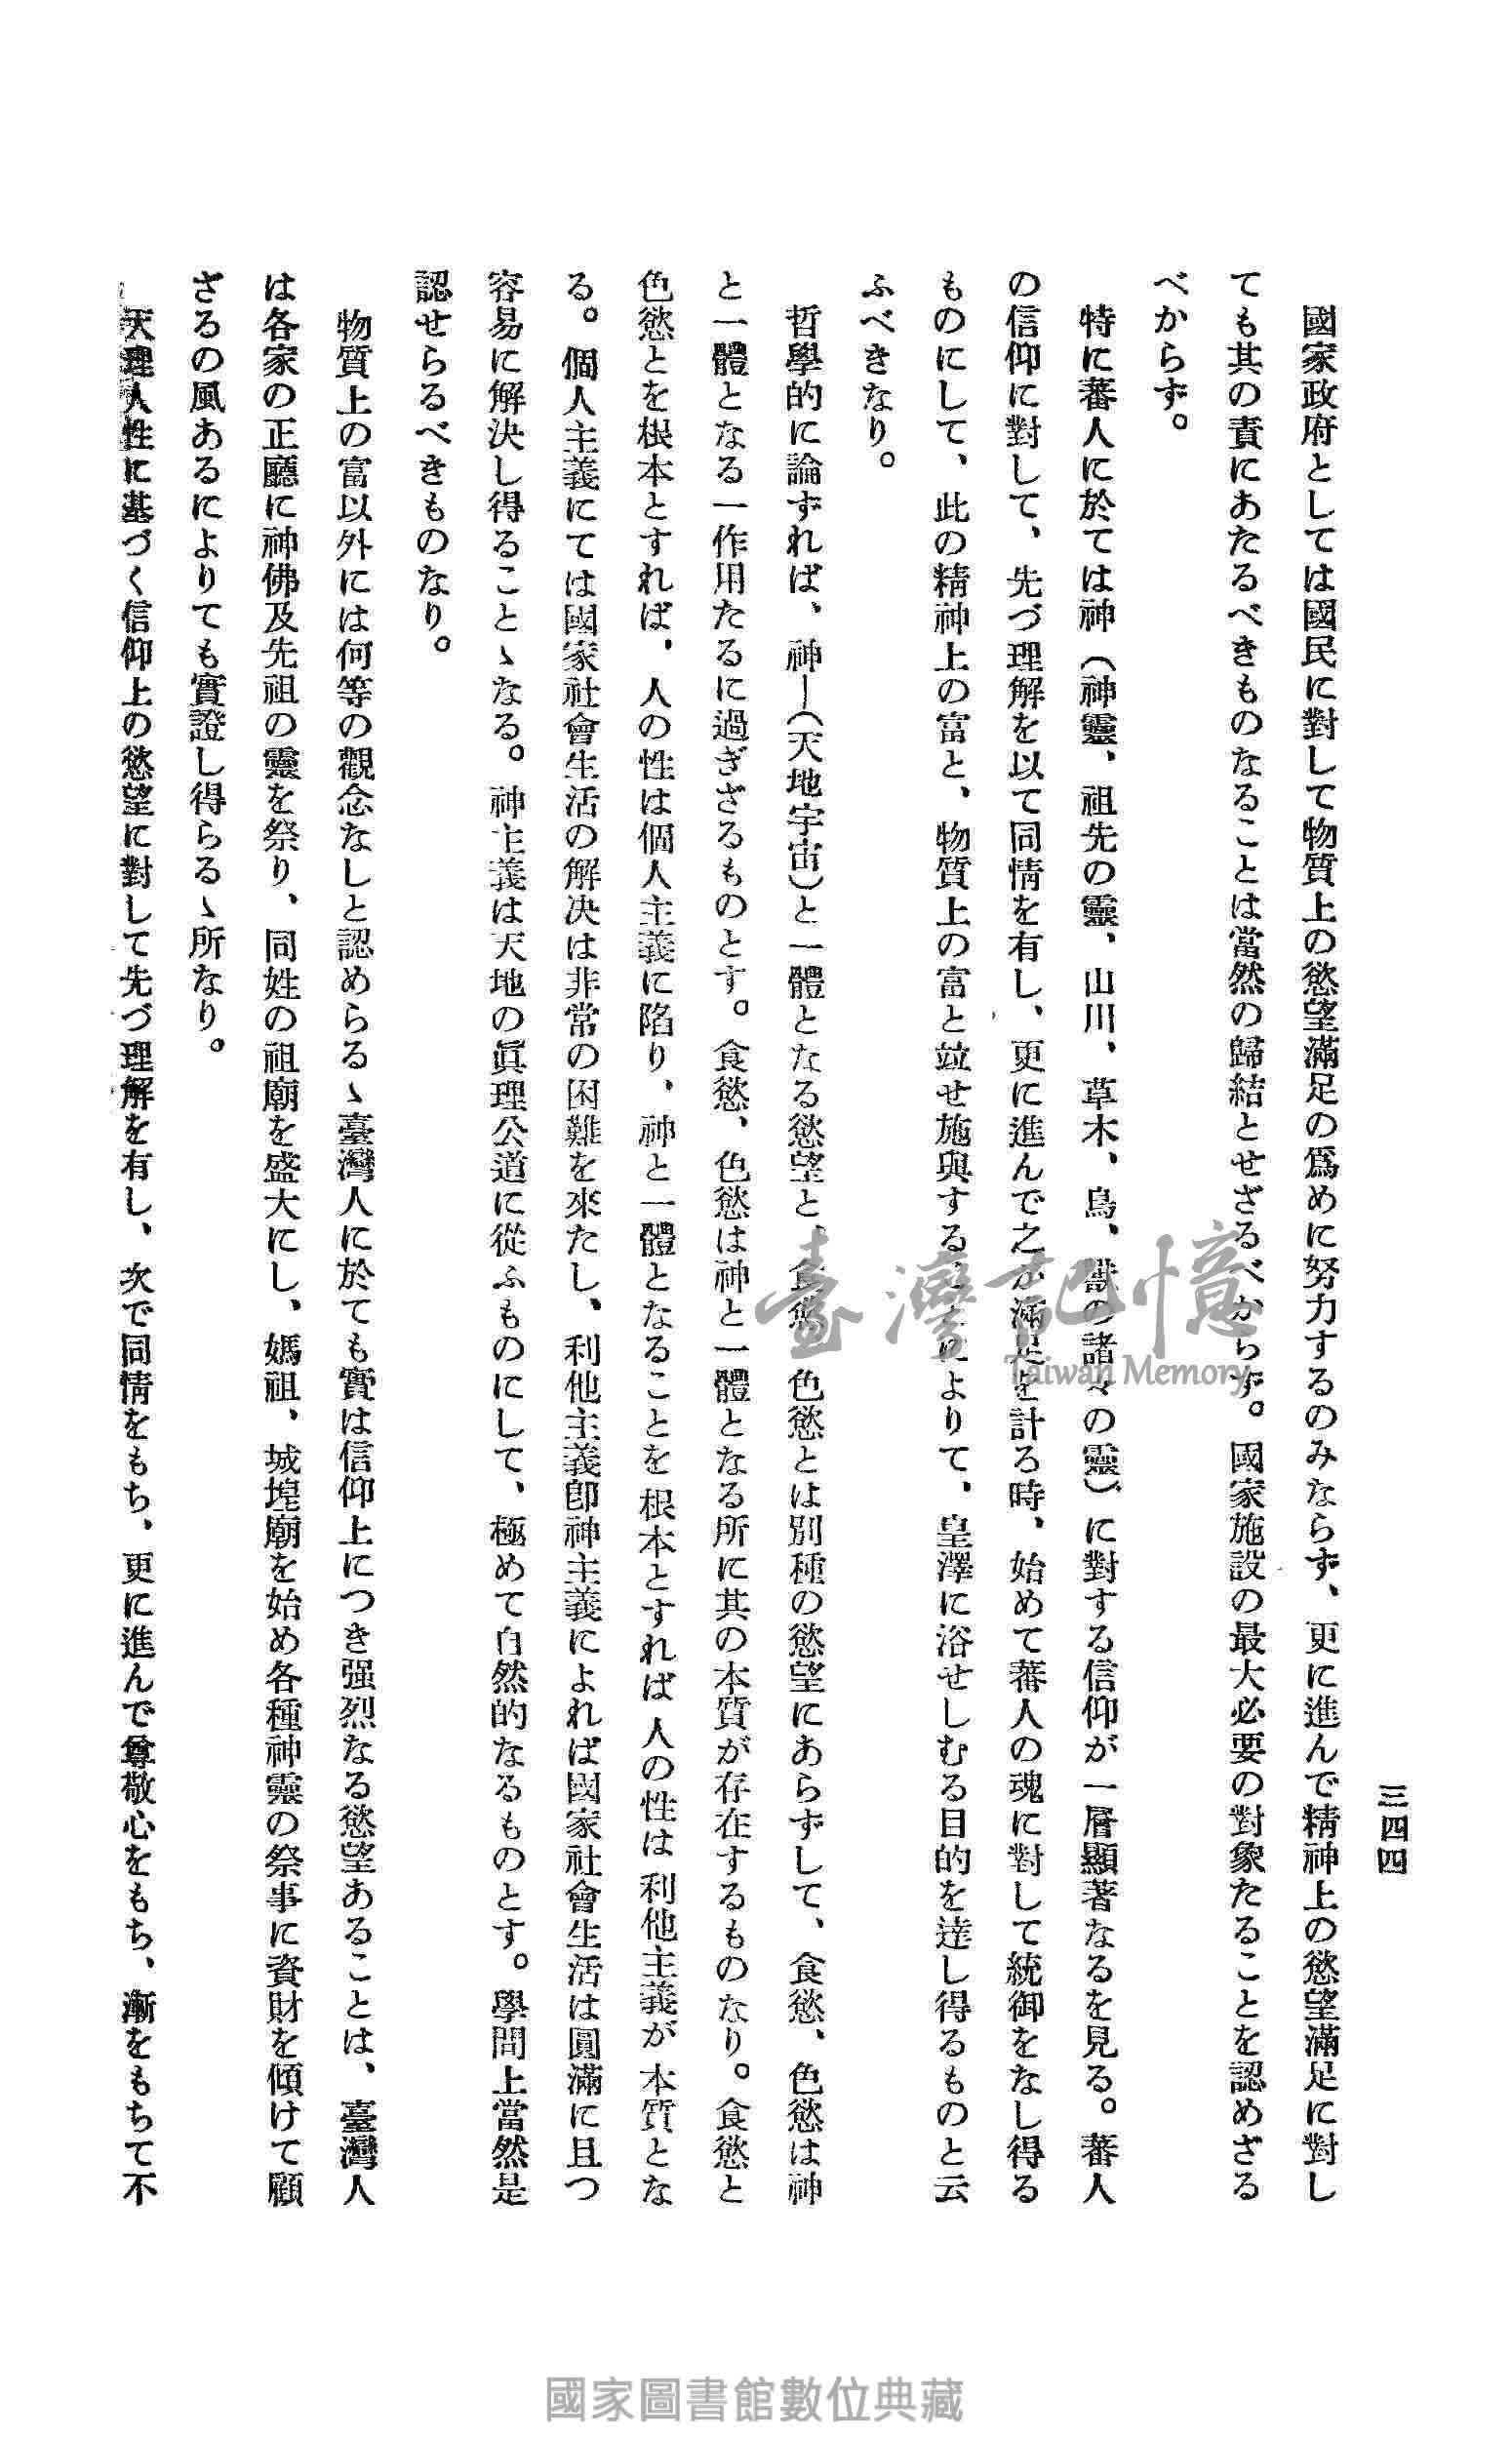 三四四
國家政府としては國民に對して物質上の慾望滿足の爲めに努力するのみならず、更に進んで精神上の慾望滿足に對し
ても其の責にあたるべきものなることは當然の歸結とせざるべからず。國家施設の最大必要の對象たることを認めざる
べからず。
特に蕃人に於ては神（神靈、祖先の靈、山川、草木、鳥、獸の諸々の靈）に對する信仰が一層顯著なるを見る。蕃人
の信仰に對して、先づ理解を以て同情を有し、更に進んで之が滿足を計る時、始めて蕃人の魂に對して統御をなし得る
ものにして、此の精神上の富と、物質上の富と竝せ施與することによりて、皇澤に浴せしむる目的を達し得るものと云
ふべきなり。
哲學的に論ずれば、神—（天地宇宙）と一體となる慾望と、食慾、色慾とは別種の慾望にあらずして、食慾、色慾は神
と一體となる一作用たるに過ぎざるものとす。食慾、色慾は神と一體となる所に其の本質が存在するものなり。食慾と
色慾とを根本とすれば、人の性は個人主義に陷り、神と一體となることを根本とすれば人の性は利他主義が本質とな
る。個人主義にては國家社會生活の解決は非常の困難を來たし、利他主義卽神主義によれば國家社會生活は圓滿に且つ
容易に解決し得ることゝなる。神主義は天地の眞理公道に從ふものにして、極めて自然的なるものとす。學問上當然是
認せらるべきものなり。
物質上の富以外には何等の觀念なしと認めらるゝ臺灣人に於ても實は信仰上につき强烈なる慾望あることは、臺灣人
は各家の正廳に神佛及先祖の靈を祭り、同姓の祖廟を盛大にし、媽祖、城堭廟を始め各種神靈の祭事に資財を傾けて顧
ざるの風あるによりても實證し得らるゝ所なり。
天理人性に基づく信仰上の慾望に對して先づ理解を有し、次で同情をもち、更に進んで尊敬心をもち、漸をもちて不
臺灣記憶
Taiwan Memory
國家圖書館數位典藏